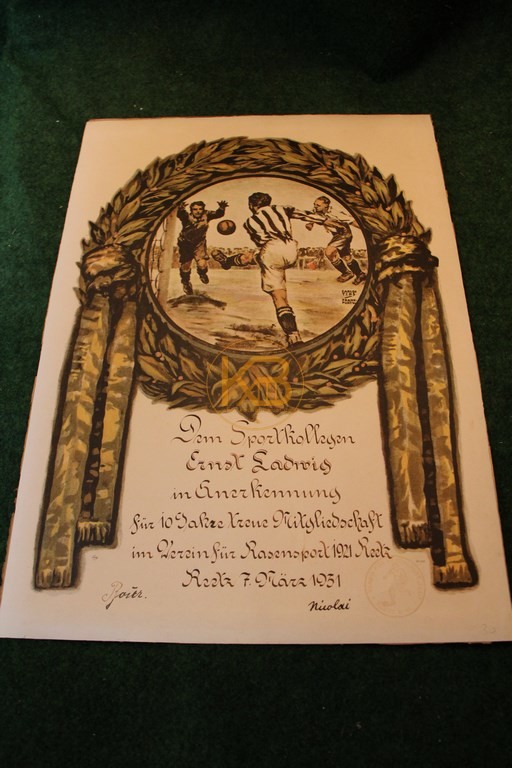 KB
Dem Sportkollegen
Ernst Ladwig
in Anerkennung
für 10 Jahre treue Mitgliedschaft
im Verein für Rasensport 1921 Reetz
Reetz 7. März 1931
Nicolai